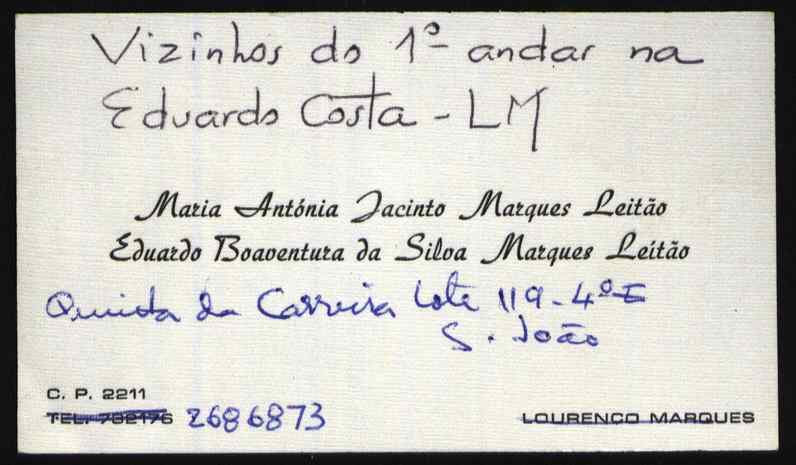 Vizinhos do 1º andar na
Eduardo Costa - LM
Maria António Jacinto Marques Leitão
Eduardo Boaventura da Silva Marques Leitão
Quinta da Carreira Lote 119-4º E
S. João
C. P. 2211
TEL. 732176 2686873
LOURENÇO MARQUES